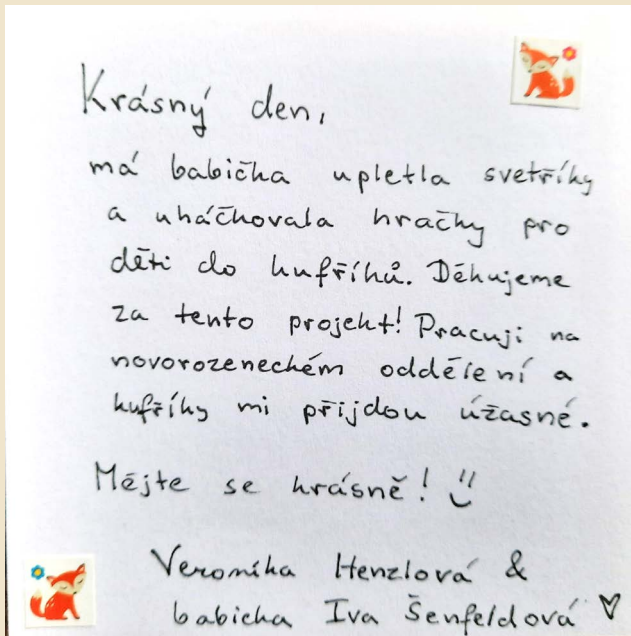 Krásný den,
má babička upletla svetříky
a uháčkovala hračky pro
děti do kufříků. Děkujeme
za tento projekt! Pracuji na
novorozeneckém oddělení a
kufříky mi přijdou úžasné.
Mějte se krásně!
Veronika Henzlová &
babicka Iva Šenfeldová ♡